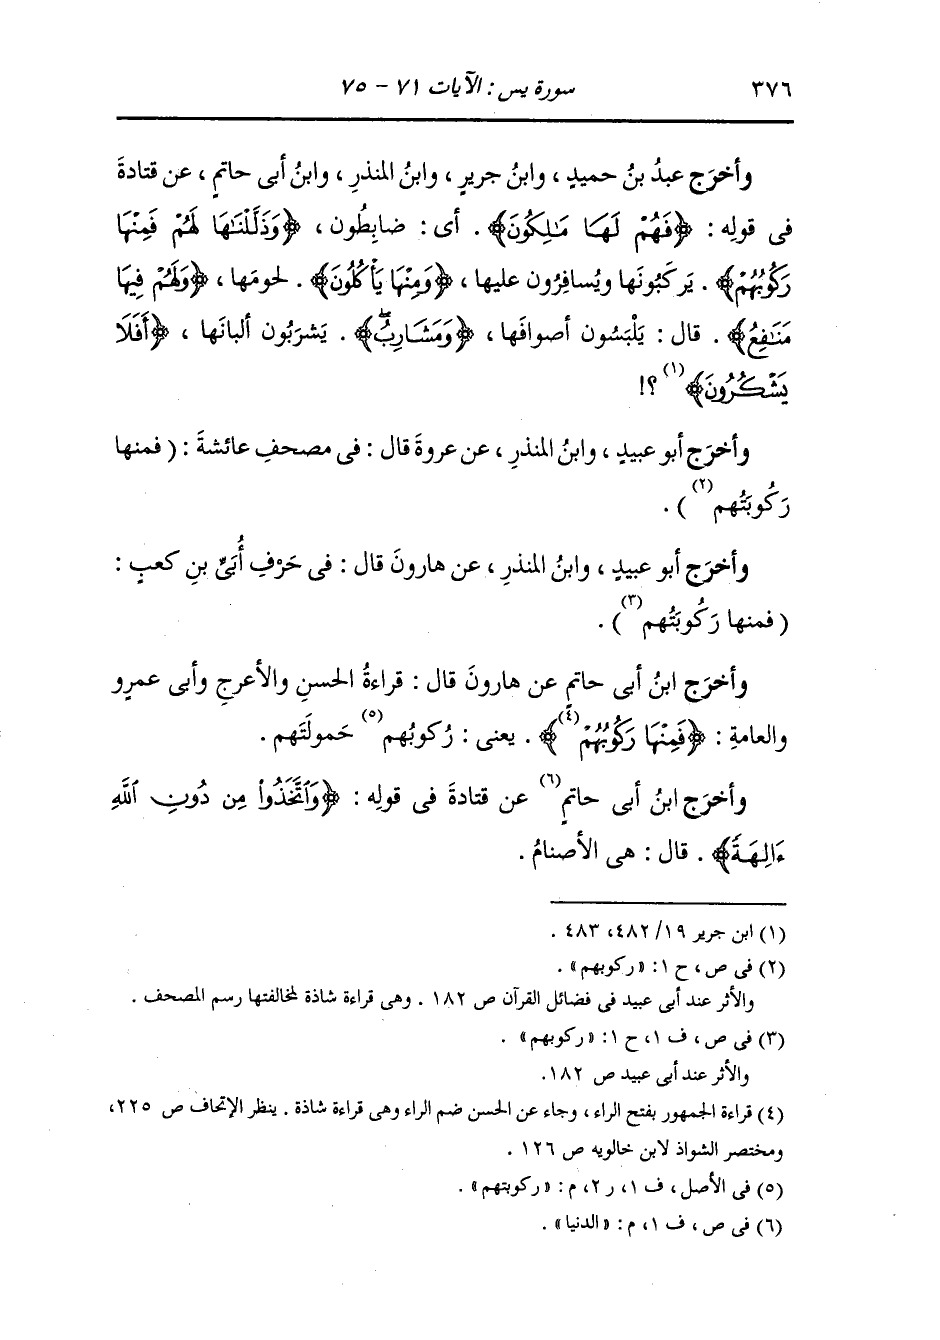 ٣٧٦ سورة يس : الآيات ٧١ - ٧٥
وأخرَج عبدُ بنُ حميدٍ ، وابنُ جريرٍ ، وابنُ المنذرِ ، وابنُ أبى حاتمٍ ، عن قتادةَ
فى قولِه : ﴿فَهُمْ لَهَا مَـٰلِكُونَ﴾ . أى : ضابِطُون ، ﴿وَذَلَّلْنَـٰهَا لَهُمْ فَمِنْهَا
رَكُوبُهُمْ﴾ . يَركَبُونَها ويُسافِرُون عليها ، ﴿وَمِنْهَا يَأْكُلُونَ﴾ . لحومَها ، ﴿وَلَهُمْ فِيهَا
مَنَـٰفِعُ﴾ . قال : يَلْبَسُون أصوافَها ، ﴿وَمَشَارِبُۖ﴾ . يَشرَبُون ألبانَها ، ﴿أَفَلَا
يَشْكُرُونَ﴾(١) ؟!
وأخرَج أبو عبيدٍ ، وابنُ المنذرِ ، عن عروةَ قال : فى مصحفِ عائشةَ : ( فمنها
رَكُوبَتُهم(٢) ) .
وأخرَج أبو عبيدٍ ، وابنُ المنذرِ ، عن هارونَ قال : فى حَرْفِ أُبَىِّ بنِ كعبٍ :
( فمنها رَكُوبَتُهم(٣) ) .
وأخرَج ابنُ أبى حاتمٍ عن هارونَ قال : قراءةُ الحسنِ والأعرجِ وأبى عمرٍو
والعامةِ : ﴿فَمِنْهَا رَكُوبُهُمْ(٤)﴾ . يعنى : رُكوبُهم(٥) حَمولَتَهم .
وأخرَج ابنُ أبى حاتمٍ(٦) عن قتادةَ فى قولِه : ﴿وَٱتَّخَذُوا۟ مِن دُونِ ٱللَّهِ
ءَالِهَةً﴾ . قال : هى الأصنامُ .
(١) ابن جرير ١٩/ ٤٨٢، ٤٨٣ .
(٢) فى ص ، ح ١: «ركوبهم» .
والأثر عند أبى عبيد فى فضائل القرآن ص ١٨٢ . وهى قراءة شاذة لمخالفتها رسم المصحف .
(٣) فى ص ، ف ١، ح ١: «ركوبهم» .
والأثر عند أبى عبيد ص ١٨٢.
(٤) قراءة الجمهور بفتح الراء ، وجاء عن الحسن ضم الراء وهى قراءة شاذة . ينظر الإتحاف ص ٢٢٥،
ومختصر الشواذ لابن خالويه ص ١٢٦ .
(٥) فى الأصل ، ف ١، ر ٢، م : «ركوبتهم» .
(٦) فى ص ، ف ١، م : «الدنيا» .